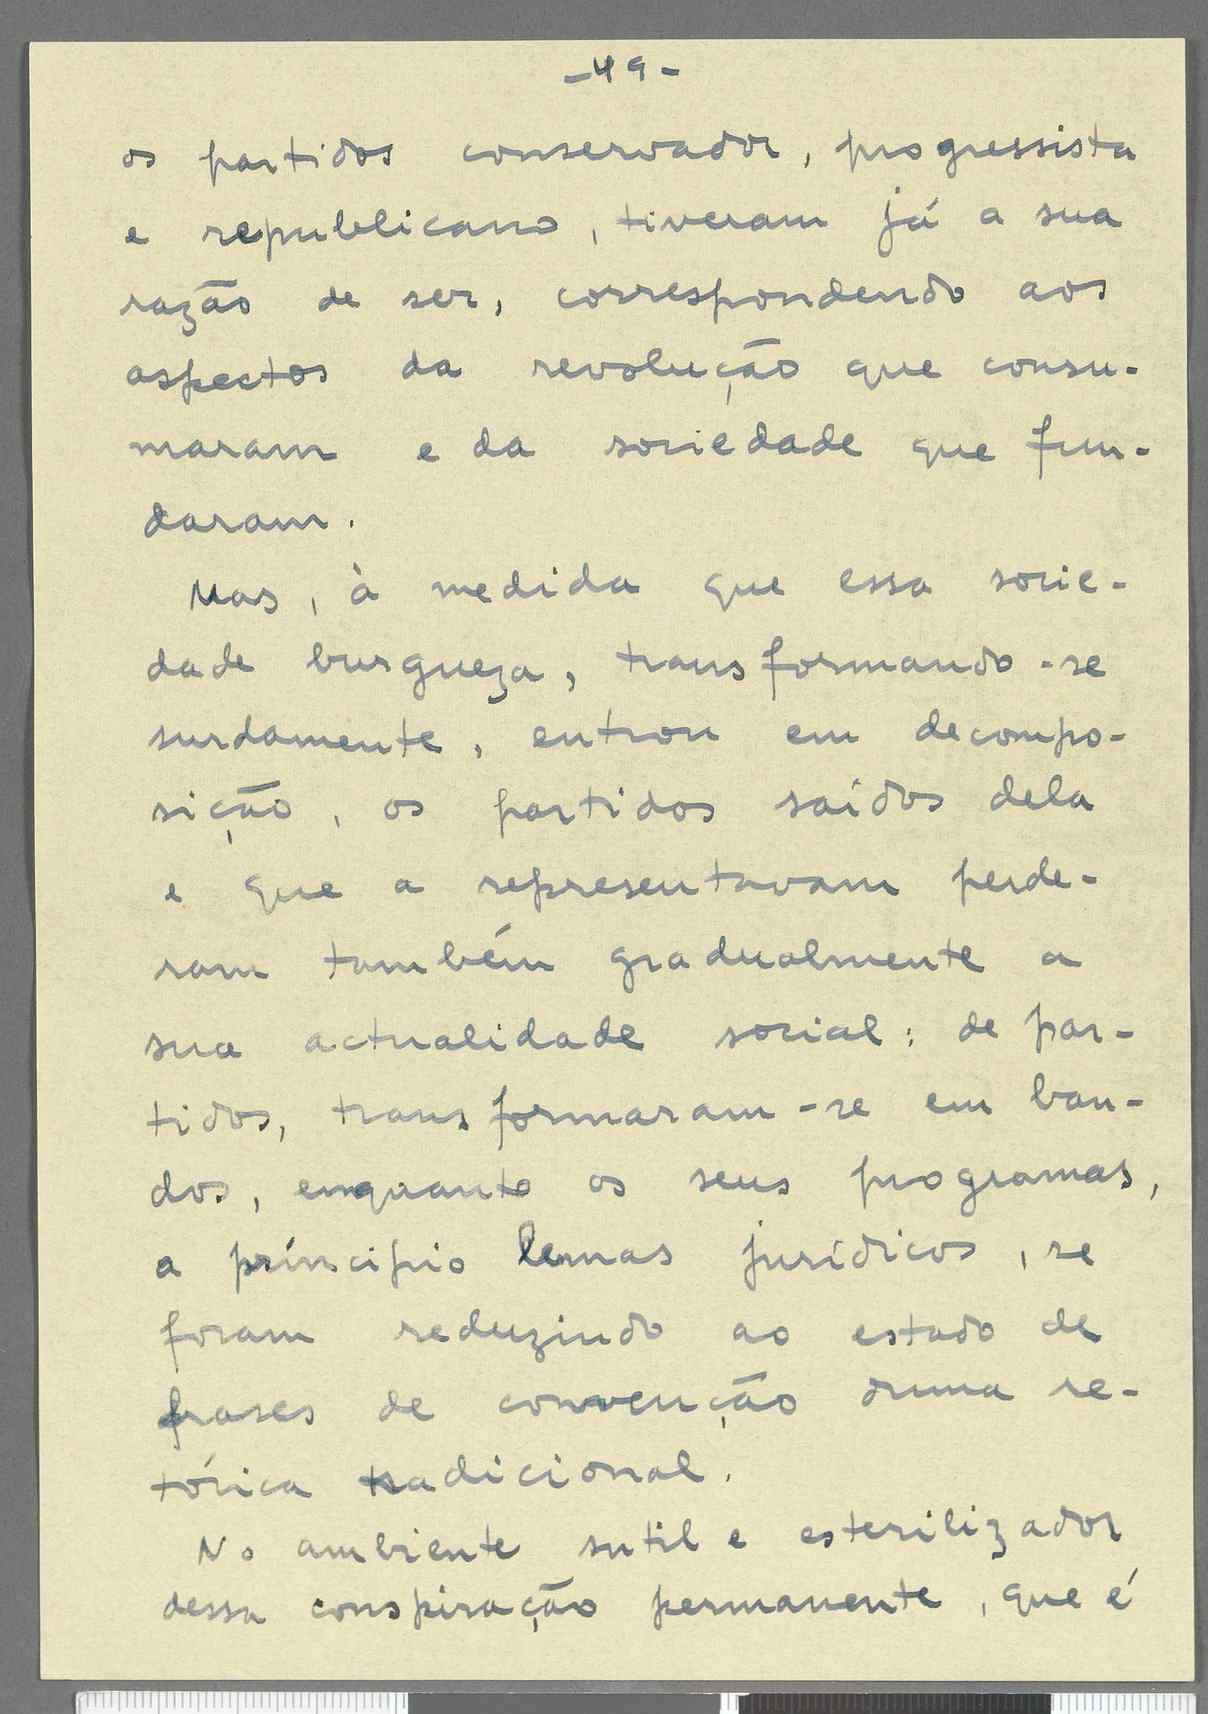 -49-
os partidos conservador, progressista
e republicano, tiveram já a sua
razão de ser, correspondendo aos
aspectos da revolução que consu-
maram e da sociedade que fun-
daram.
Mas, à medida que essa socie-
dade burgueza, transformando-se
surdamente, entrou em decompo-
sição, os partidos saídos dela
e que a representavam perde-
ram também gradualmente a
sua actualidade social: de par-
tidos, transformaram-se em ban-
dos, enquanto os seus programas,
a príncipio lemas jurídicos, se
foram reduzindo ao estado de
frases de convenção duma re-
tórica tradicional.
No ambiente sutil e esterilizador
dessa conspiração permanente, que é